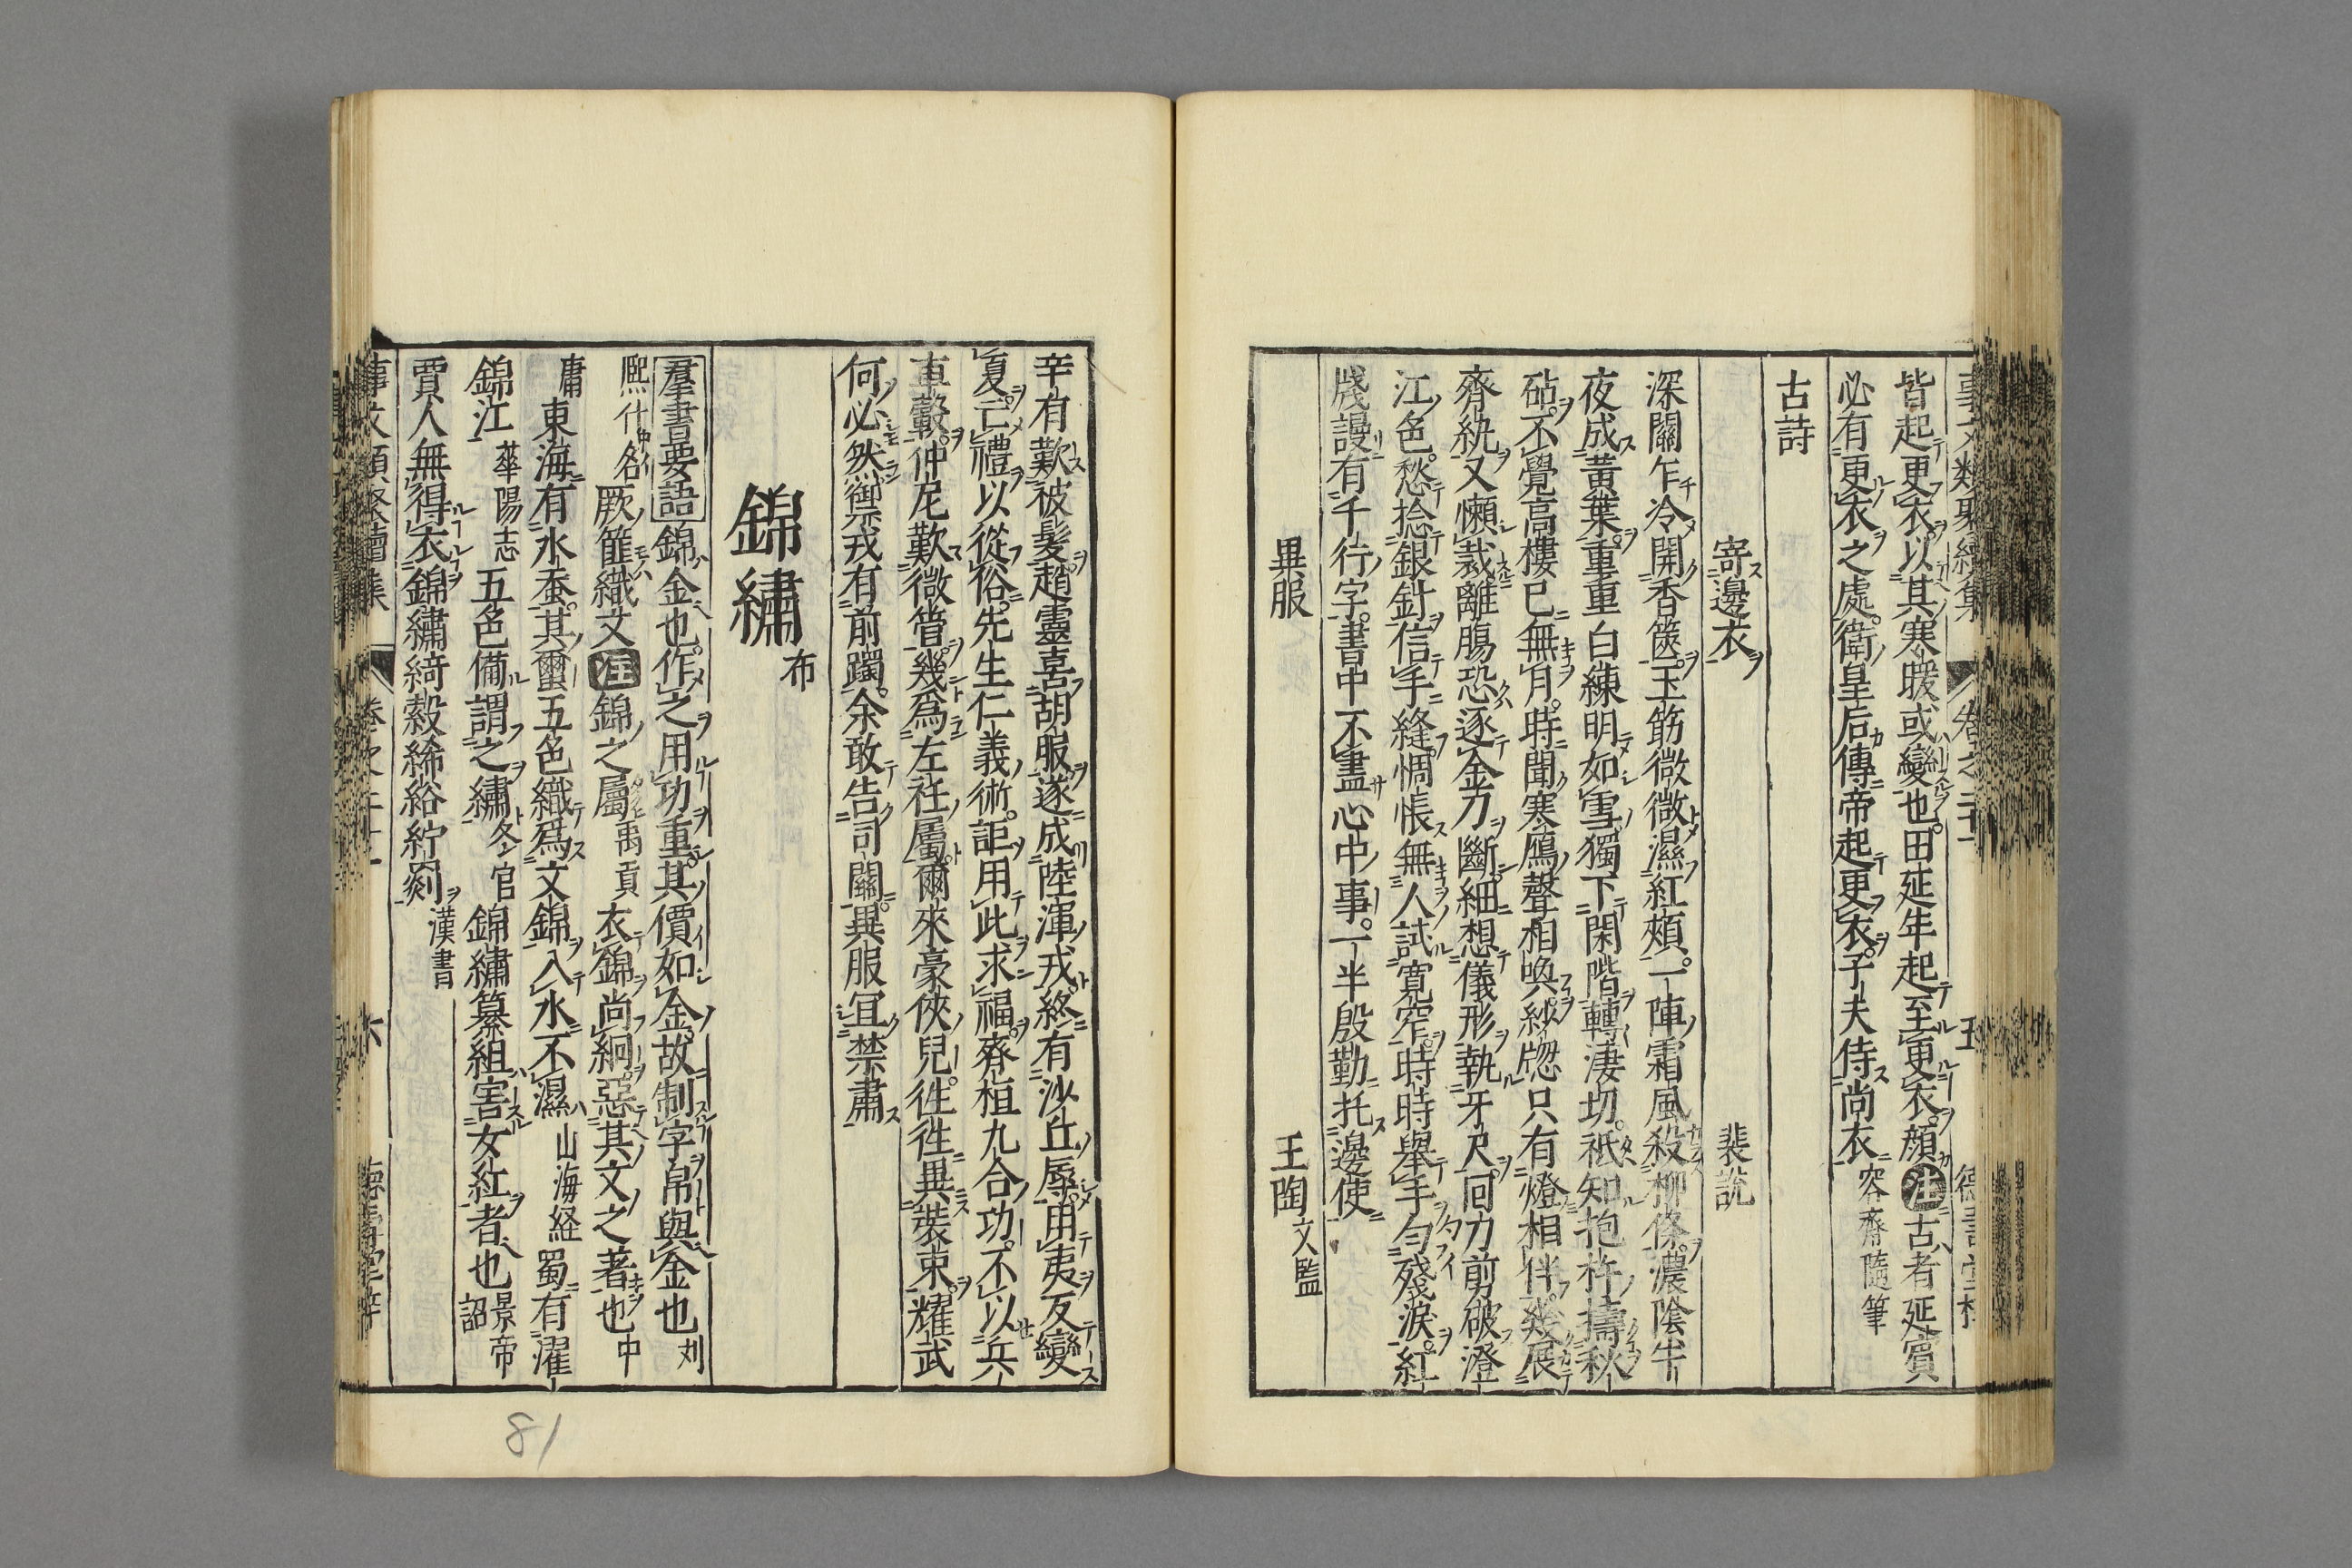 皆起更衣以其寒暖或變也田延年起至更衣顔注古者延賓
必有更衣之處衛皇后傳帝起更衣子夫侍尚衣容齋隨筆
古詩
寄邊衣 裴說
深關乍冷開香篋玉筯微微濕紅頰一陣霜風殺柳條濃陰半
夜成黃葉重重白練明如雪獨下閑階轉凄切祇知抱杵擣秋
砧不覺高樓已無月時聞寒鴈聲相喚紗窓只有燈相伴幾展
齊紈又懶裁離腸恐逐金刀斷細想儀形執牙尺回力剪破澄
江色愁捻銀針信手縫惆悵無人試寬窄時時舉手勻殘淚紅
牋謾有千行字書中不盡心中事一半殷勤托邊使
異服 王陶文監
辛有歎被髮趙靈喜胡服遂成陸渾戎終有沙丘辱用夷反變
夏亡禮以從俗先生仁義術詎用此求福齊桓九合功不以兵
車轂仲尼歎微管幾爲左衽屬爾來豪俠兒徃徃異裝束耀武
何必然禦戎有前躅余敢告司關異服宜禁肅
錦繡 布
羣書要語錦金也作之用功重其價如金故制字帛與金也刘
熙什名厥篚織文注錦之屬禹貢衣錦尚絅惡其文之著也中
庸東海有水蚕其蠒五色織爲文錦入水不濕山海経蜀有濯
錦江華陽志五色備謂之繡冬官錦繡纂組害女紅者也景帝詔
賈人無得衣錦繡綺縠絺綌紵罽漢書
事文類聚續集 卷之二十一 六
81